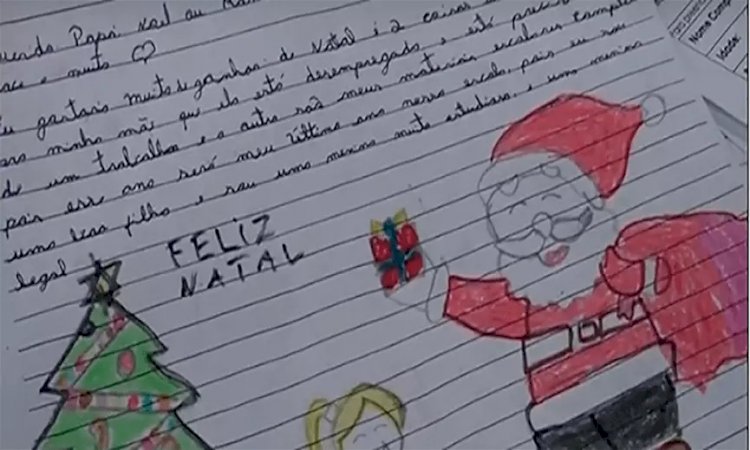 Papai Noel ou Ma
muito
gostaria muito de ganhar de Natal é 2 coisas
minha mãe que ela está desempregada e está preci
de um trabalho e a outra são meus materiais escolares completo
pois esse ano será meu último ano nessa escola, pois eu sou
uma boa filha e sou uma menina muito estudiosa e uma menina
legal
FELIZ
NATAL
Nome Comp
Idade: